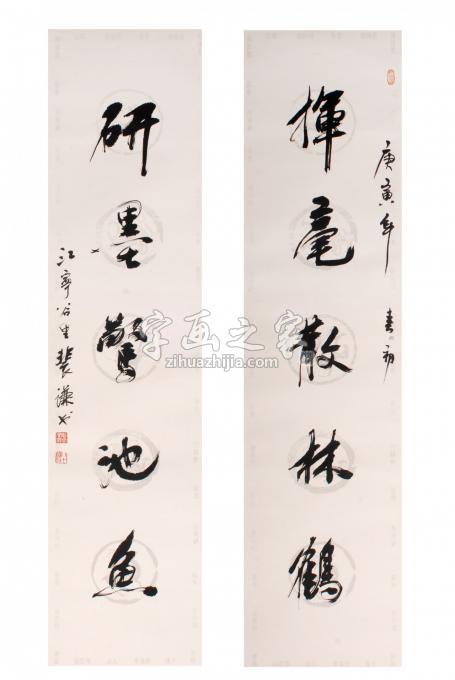 庚寅年春初
揮毫散林鶴
研墨驚池魚
江寧谷里裴謙书
字画之家
zihuazhijia.com